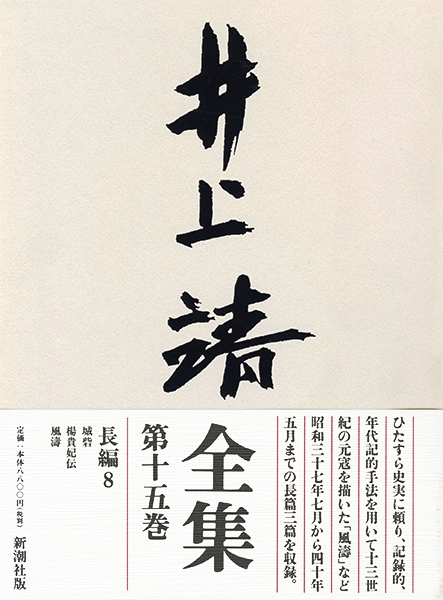 井上靖
ひたすら史実に頼り、記録的、
年代記的手法を用いて十三世
紀の元寇を描いた「風濤」など
昭和三十七年七月から四十年
五月までの長篇三篇を収録。
全集
第十五巻
長編8
城砦
楊貴妃伝
風濤
定価：本体八八〇〇円（税別）
新潮社版